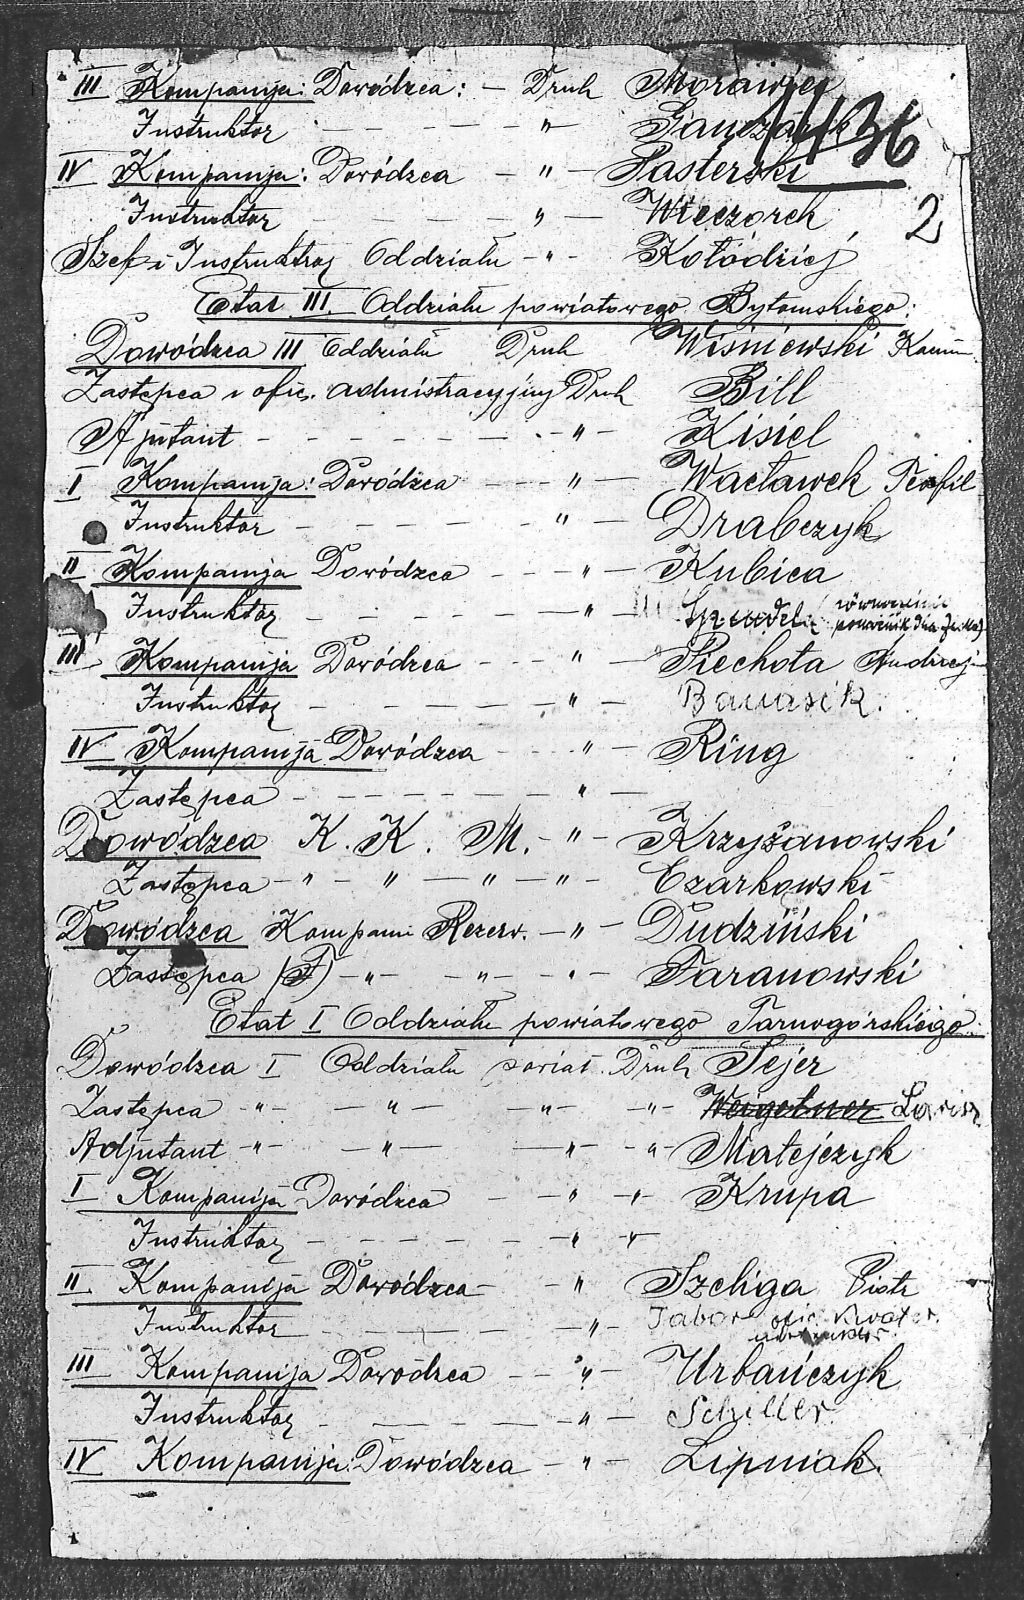 III Kompanija: Dowódzca: - Druh Morawiec
Instruktor - - - - " - Ganczarek
1436
IV Kompanija: Dowódzca - " - Pasterski
Instruktor - - - - - " - Wieczorek
2
Szef i Instruktor Oddziału - " - Kołodziej
Etat III Oddziału powiatowego Bytomskiego:
Dowódzca III Oddziału Druh Wiśniewski
Zastępca i ofic. admistracyjny Druh Bill
Ajutant - - - - - - - " - Kisiel
I Kompanija: Dowódzca - - - " - Wacławek Teofil
Instruktor - - - - - " - Drabczyk
II Kompanija Dowódzca - - - " - Kubica
Instruktor - - - - - " -
III Kompanija Dowódzca - - - " - Piechota Andrzej
Instruktor - - - - - " - Banasik.
IV Kompanija Dowódzca - - - " - Ring
Zastępca - - - - - - - " -
Dowódzca K. K. M. - " - Krzyżanowski
Zastępca - " - " - " - " - Czarkowski
Dowódzca Kompanii Rezerw. - " - Dudziński
Zastępca (F) - " - " - " - Taranowski
Etat I Oddziału powiatowego Tarnogórskiego:
Dowódzca I Oddziału powiat. Druh Pejer
Zastępca -"- -"- -"- -"- Weigetner
Adjutant -"- -"- -"- -"- Matejczyk
I Kompanija Dowódzca - - " " - Krupa
Instruktor - - - - - - " "
II Kompanija Dowódzca - " Szeliga Piotr
Instruktor - - - - - " - Tabor ofic. kwater.
III Kompanija Dowódzca - - " - Urbańczyk
Instruktor - - - - - " - Schiller.
IV Kompanija: Dowódzca - " - Lipniak.